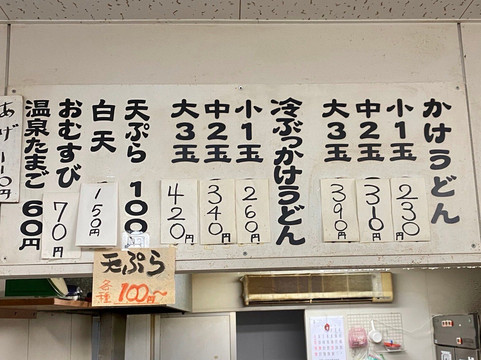 かけうどん
小1玉 230円
中2玉 310円
大3玉 390円
冷ぶっかけうどん
小1玉 260円
中2玉 340円
大3玉 420円
天ぷら 100円
白天 150円
おむすび 70円
温泉たまご 60円
あげ 110円
天ぷら
各種 100円〜